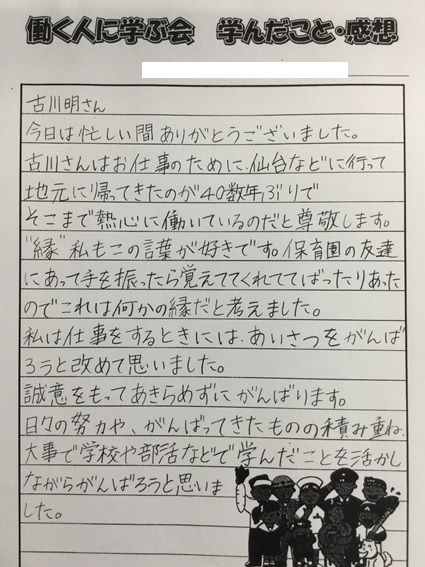 働く人に学ぶ会 学んだこと・感想
古川明さん
今日は忙しい間ありがとうございました。
古川さんはお仕事のために、仙台などに行って
地元に帰ってきたのが40数年ぶりで
そこまで熱心に働いているのだと尊敬します。
"縁"私もこの言葉が好きです。保育園の友達
にあって手を振ったら覚えててくれててばったりあった
のでこれは何かの縁だと考えました。
私は仕事をするときには、あいさつをがんば
ろうと改めて思いました。
誠意をもってあきらめずにがんばります。
日々の努力や、がんばってきたものの積み重ね、
大事で学校や部活などで学んだことを活かし
ながらがんばろうと思いま
した。